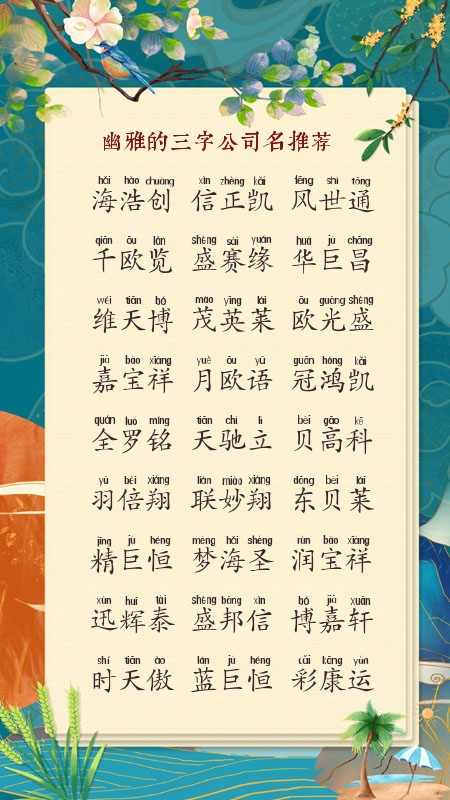 幽雅的三字公司名推荐
hǎi hào chuàng xìn zhèng kǎi fēng shì tōng
海浩创 信正凯 风世通
qiān ōu lǎn shèng sài yuán huá jù chāng
千欧览 盛赛缘 华巨昌
wéi tiān bó mào yīng lái ōu guāng shèng
维天博 茂英莱 欧光盛
jiā bǎo xiáng yuè ōu yǔ guān hóng kǎi
嘉宝祥 月欧语 冠鸿凯
quán luó míng tiān chí lì bèi gāo kē
全罗铭 天驰立 贝高科
yǔ bèi xiáng lián miào xiáng dōng bèi lái
羽倍翔 联妙翔 东贝莱
jīng jù héng mèng hǎi shèng rùn bǎo xiáng
精巨恒 梦海圣 润宝祥
xùn huī tài shèng bāng xìn bó jiā xuān
迅辉泰 盛邦信 博嘉轩
shí tiān ào lán jù héng cǎi kāng yùn
时天傲 蓝巨恒 彩康运